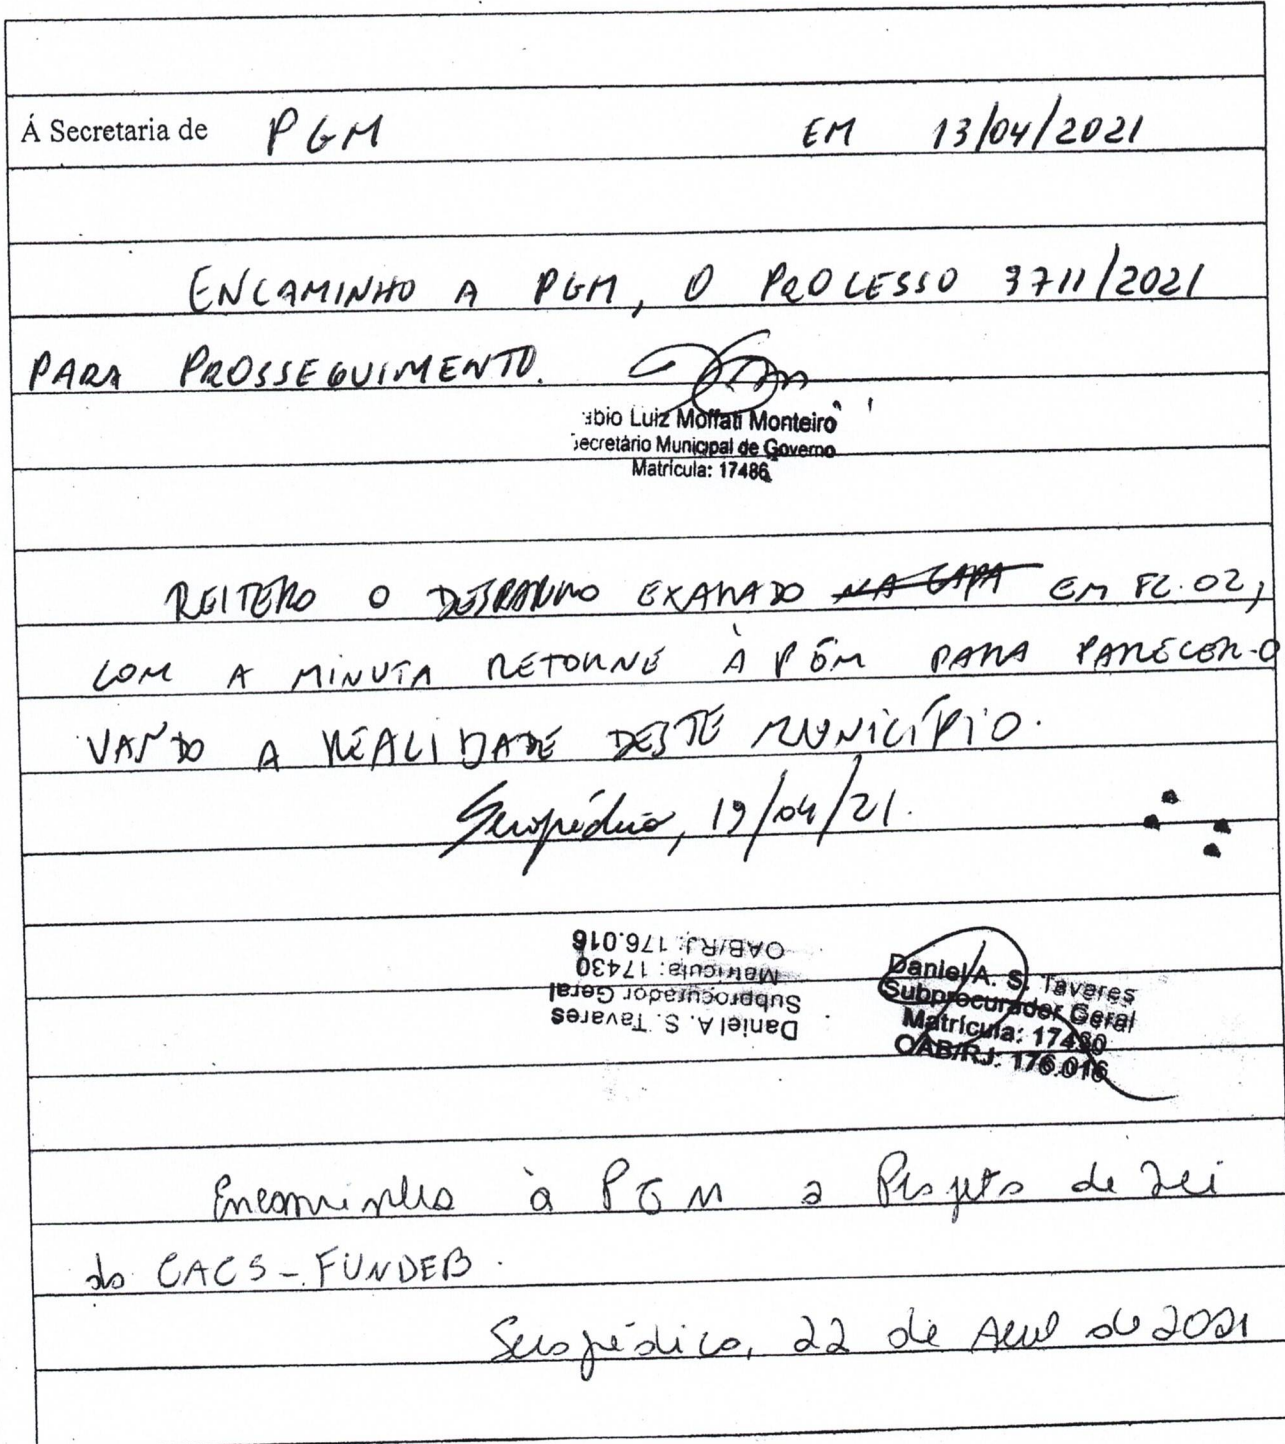 Á Secretaria de PGM EM 13/04/2021
ENCAMINHO A PGM, O PROCESSO 3711/2021
PARA PROSSEGUIMENTO.
abio Luiz Moffati Monteiro
ecretário Municipal de Governo
Matrícula: 17486
REITERO O EXARADO NA CAPA EM FL. 02,
COM A MINUTA RETORNE À PGM PARA PARECER-O
A REALIDADE DESTE MUNICÍPIO.
Seropédica, 19/04/21.
Daniel A. S. Tavares
Subprocurador Geral
Matrícula: 17430
OAB/RJ: 176.016
Daniel A. S. Tavares
Subprocurador Geral
Matrícula: 17430
OAB/RJ: 176.016
Encaminho à PGM o Projeto de Lei
do CACS - FUNDEB.
Seropédica, 22 de Abril de 2021